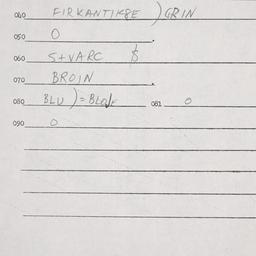 040 FIRKANTIKSE ) GRIN
050 O
060 S+VARC $
070 BROIN
080 BLU ) = BLOJE 081 O
090 O